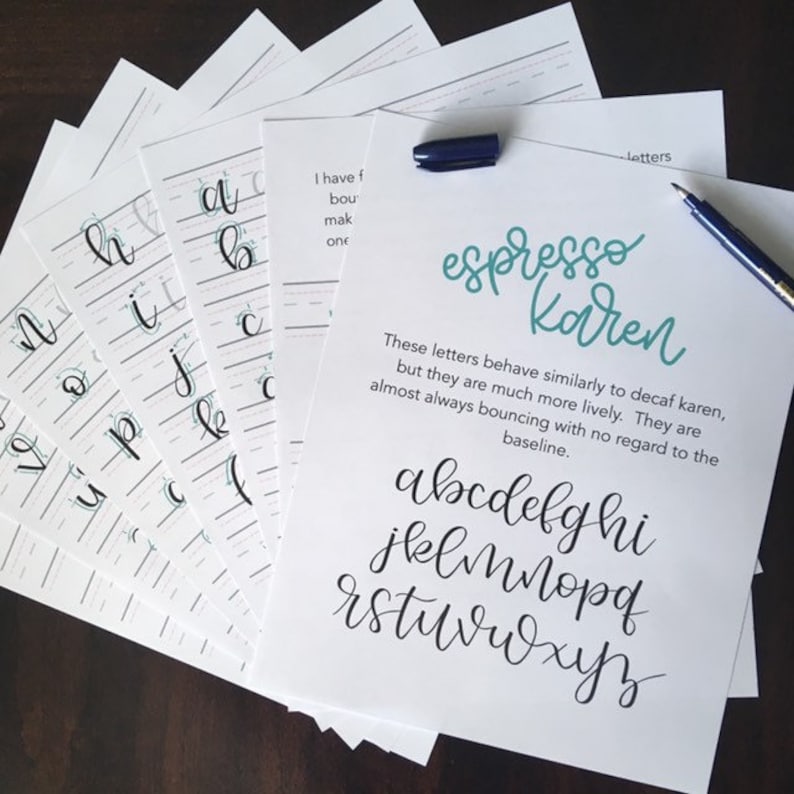 espresso
karen
These letters behave similarly to decaf karen,
but they are much more lively. They are
almost always bouncing with no regard to the
baseline.
abcdefghi
jklmnopq
rstuvwxyz
letters
I have
one
a
b
c
h
i
j
k
l
n
o
p
v
u